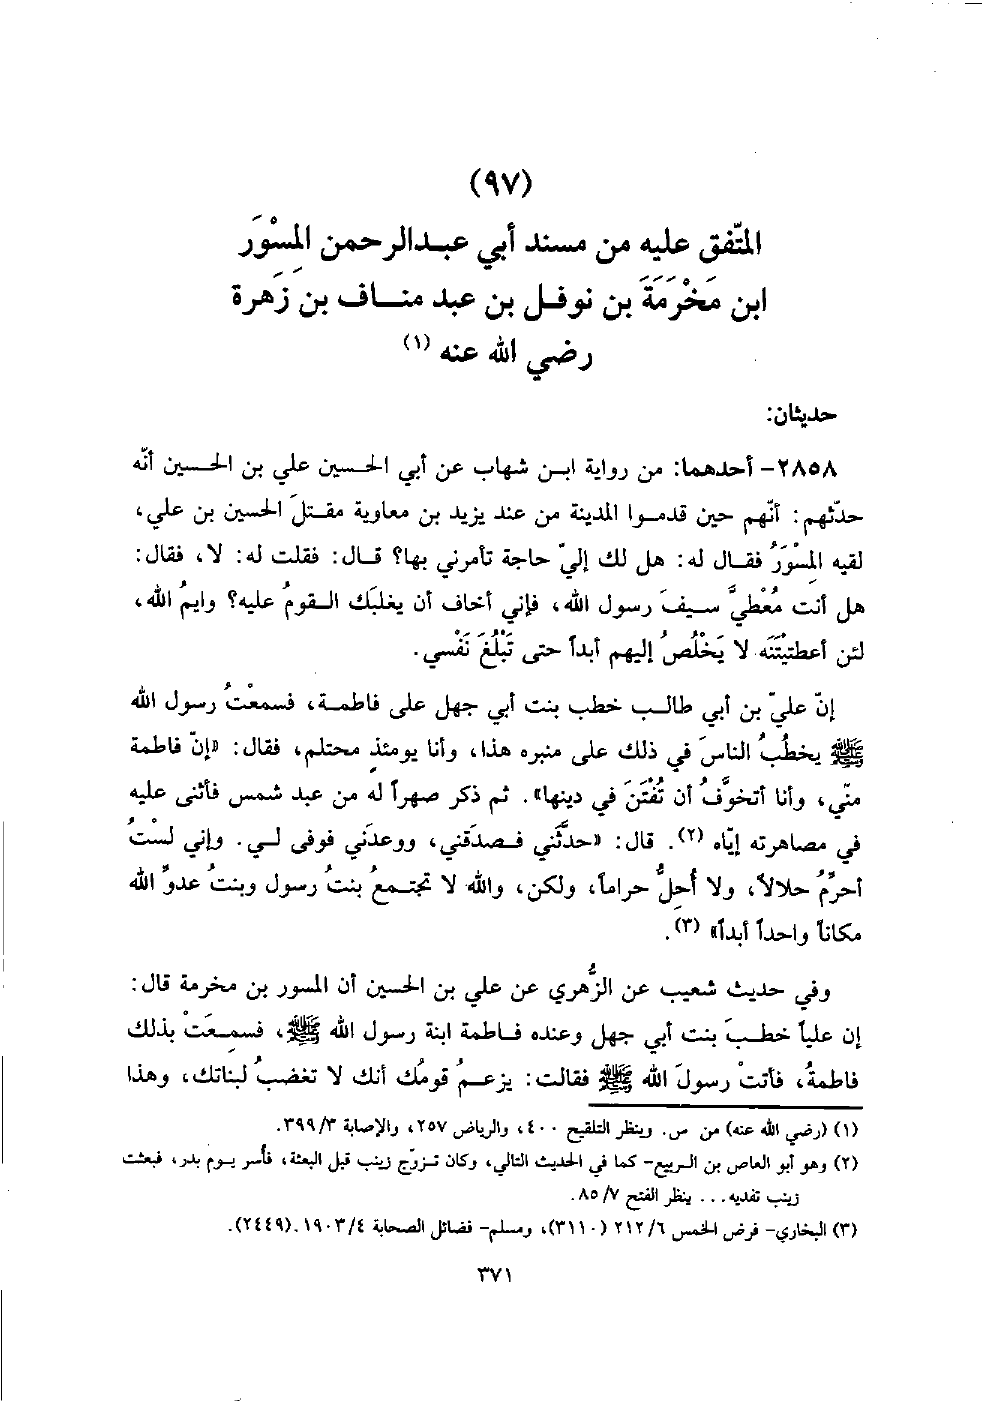 (٩٧)
المتّفق عليه من مسند أبي عبدالرحمن المِسْوَر
ابن مَخْرَمَةَ بن نوفل بن عبد مناف بن زَهرة
رضي الله عنه (١)
حديثان:
٢٨٥٨- أحدهما: من رواية ابن شهاب عن أبي الحسين علي بن الحسين أنّه
حدّثهم: أنّهم حين قدموا المدينة من عند يزيد بن معاوية مقتلَ الحسين بن علي،
لقيه المِسْوَرُ فقال له: هل لك إليّ حاجة تأمرني بها؟ قال: فقلت له: لا، فقال:
هل أنت مُعْطِيَّ سيفَ رسول الله، فإني أخاف أن يغلبَك القومُ عليه؟ وايمُ الله،
لئن أعطيتَنيه لا يَخْلُصُ إليهم أبداً حتى تَبْلُغَ نَفْسي.
إنّ عليّ بن أبي طالب خطب بنت أبي جهل على فاطمة، فسمعْتُ رسول الله
ﷺ يخطُبُ الناسَ في ذلك على منبره هذا، وأنا يومئذٍ محتلم، فقال: «إنّ فاطمة
منّي، وأنا أتخوَّفُ أن تُفْتَنَ في دينها». ثم ذكر صهراً له من عبد شمس فأثنى عليه
في مصاهرته إيّاه (٢). قال: «حدَّثَني فصدَقني، ووعدَني فوفى لي. وإني لسْتُ
أحرِّمُ حلالاً، ولا أُحِلُّ حراماً، ولكن، والله لا تجتمعُ بنتُ رسول وبنتُ عدوِّ الله
مكاناً واحداً أبداً» (٣).
وفي حديث شعيب عن الزُّهري عن علي بن الحسين أن المسور بن مخرمة قال:
إن علياً خطبَ بنت أبي جهل وعنده فاطمة ابنة رسول الله ﷺ، فسمِعَتْ بذلك
فاطمةُ، فأتتْ رسولَ الله ﷺ فقالت: يزعمُ قومُك أنك لا تغضبُ لبناتك، وهذا
(١) (رضي الله عنه) من س. وينظر التلقيح ٤٠٠، والرياض ٢٥٧، والإصابة ٣/ ٣٩٩.
(٢) وهو أبو العاص بن الربيع- كما في الحديث التالي، وكان تزوّج زينب قبل البعثة، فأسر يوم بدر، فبعثت
زينب تفديه... ينظر الفتح ٧/ ٨٥.
(٣) البخاري- فرض الخمس ٦/ ٢١٢ (٣١١٠)، ومسلم- فضائل الصحابة ٤/ ١٩٠٣. (٢٤٤٩).
٣٧١